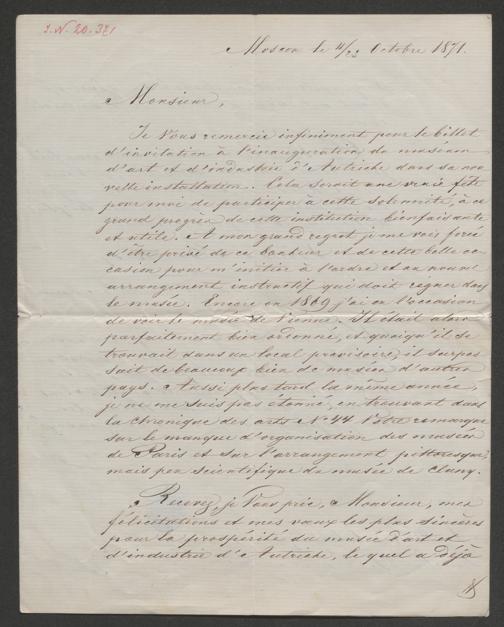 I.N. 20.321
Moscou le 11/23 Octobre 1871.
Monsieur,
Je Vous remercie infiniment pour le billet
d'invitation à l'inauguration du muséum
d'art et d'industrie d'Autriche dans sa nou
velle installation. Cela serait une vraie fête
pour moi de participer à cette solemnité, à ce
grand progrès de cette institution bienfaisante
et utile. A mon grand regret je me vois forcé
d'être privé de ce bonheur et de cette belle oc-
casion pour m'initier à l'ordre et au nouvel
arrangement instructif qui doit regner dans
le musée. Encore en 1869 j'ai eu l'occasion
de voir le musée de Vienne. Il était alors
parfaitement bien ordonné, et quoiqu'il se
trouvait dans un local provisoire, il surpas
sait de beaucoup bien de muséum d'autres
pays. Aussi plus tard la même année,
je ne me suis pas étonné, en trouvant dans
la chronique des arts No 44 Votre remarque
sur le manque d'organisation des muséum
de Paris et sur l'arrangement pittoresque,
mais peu scientifique du musée de Cluny.
Recevez, je Vous prie, Monsieur, mes
félicitations et mes vœux les plus sincères
pour la prospérité du musée d'art et
d'industrie d'Autriche, le quel a déjà